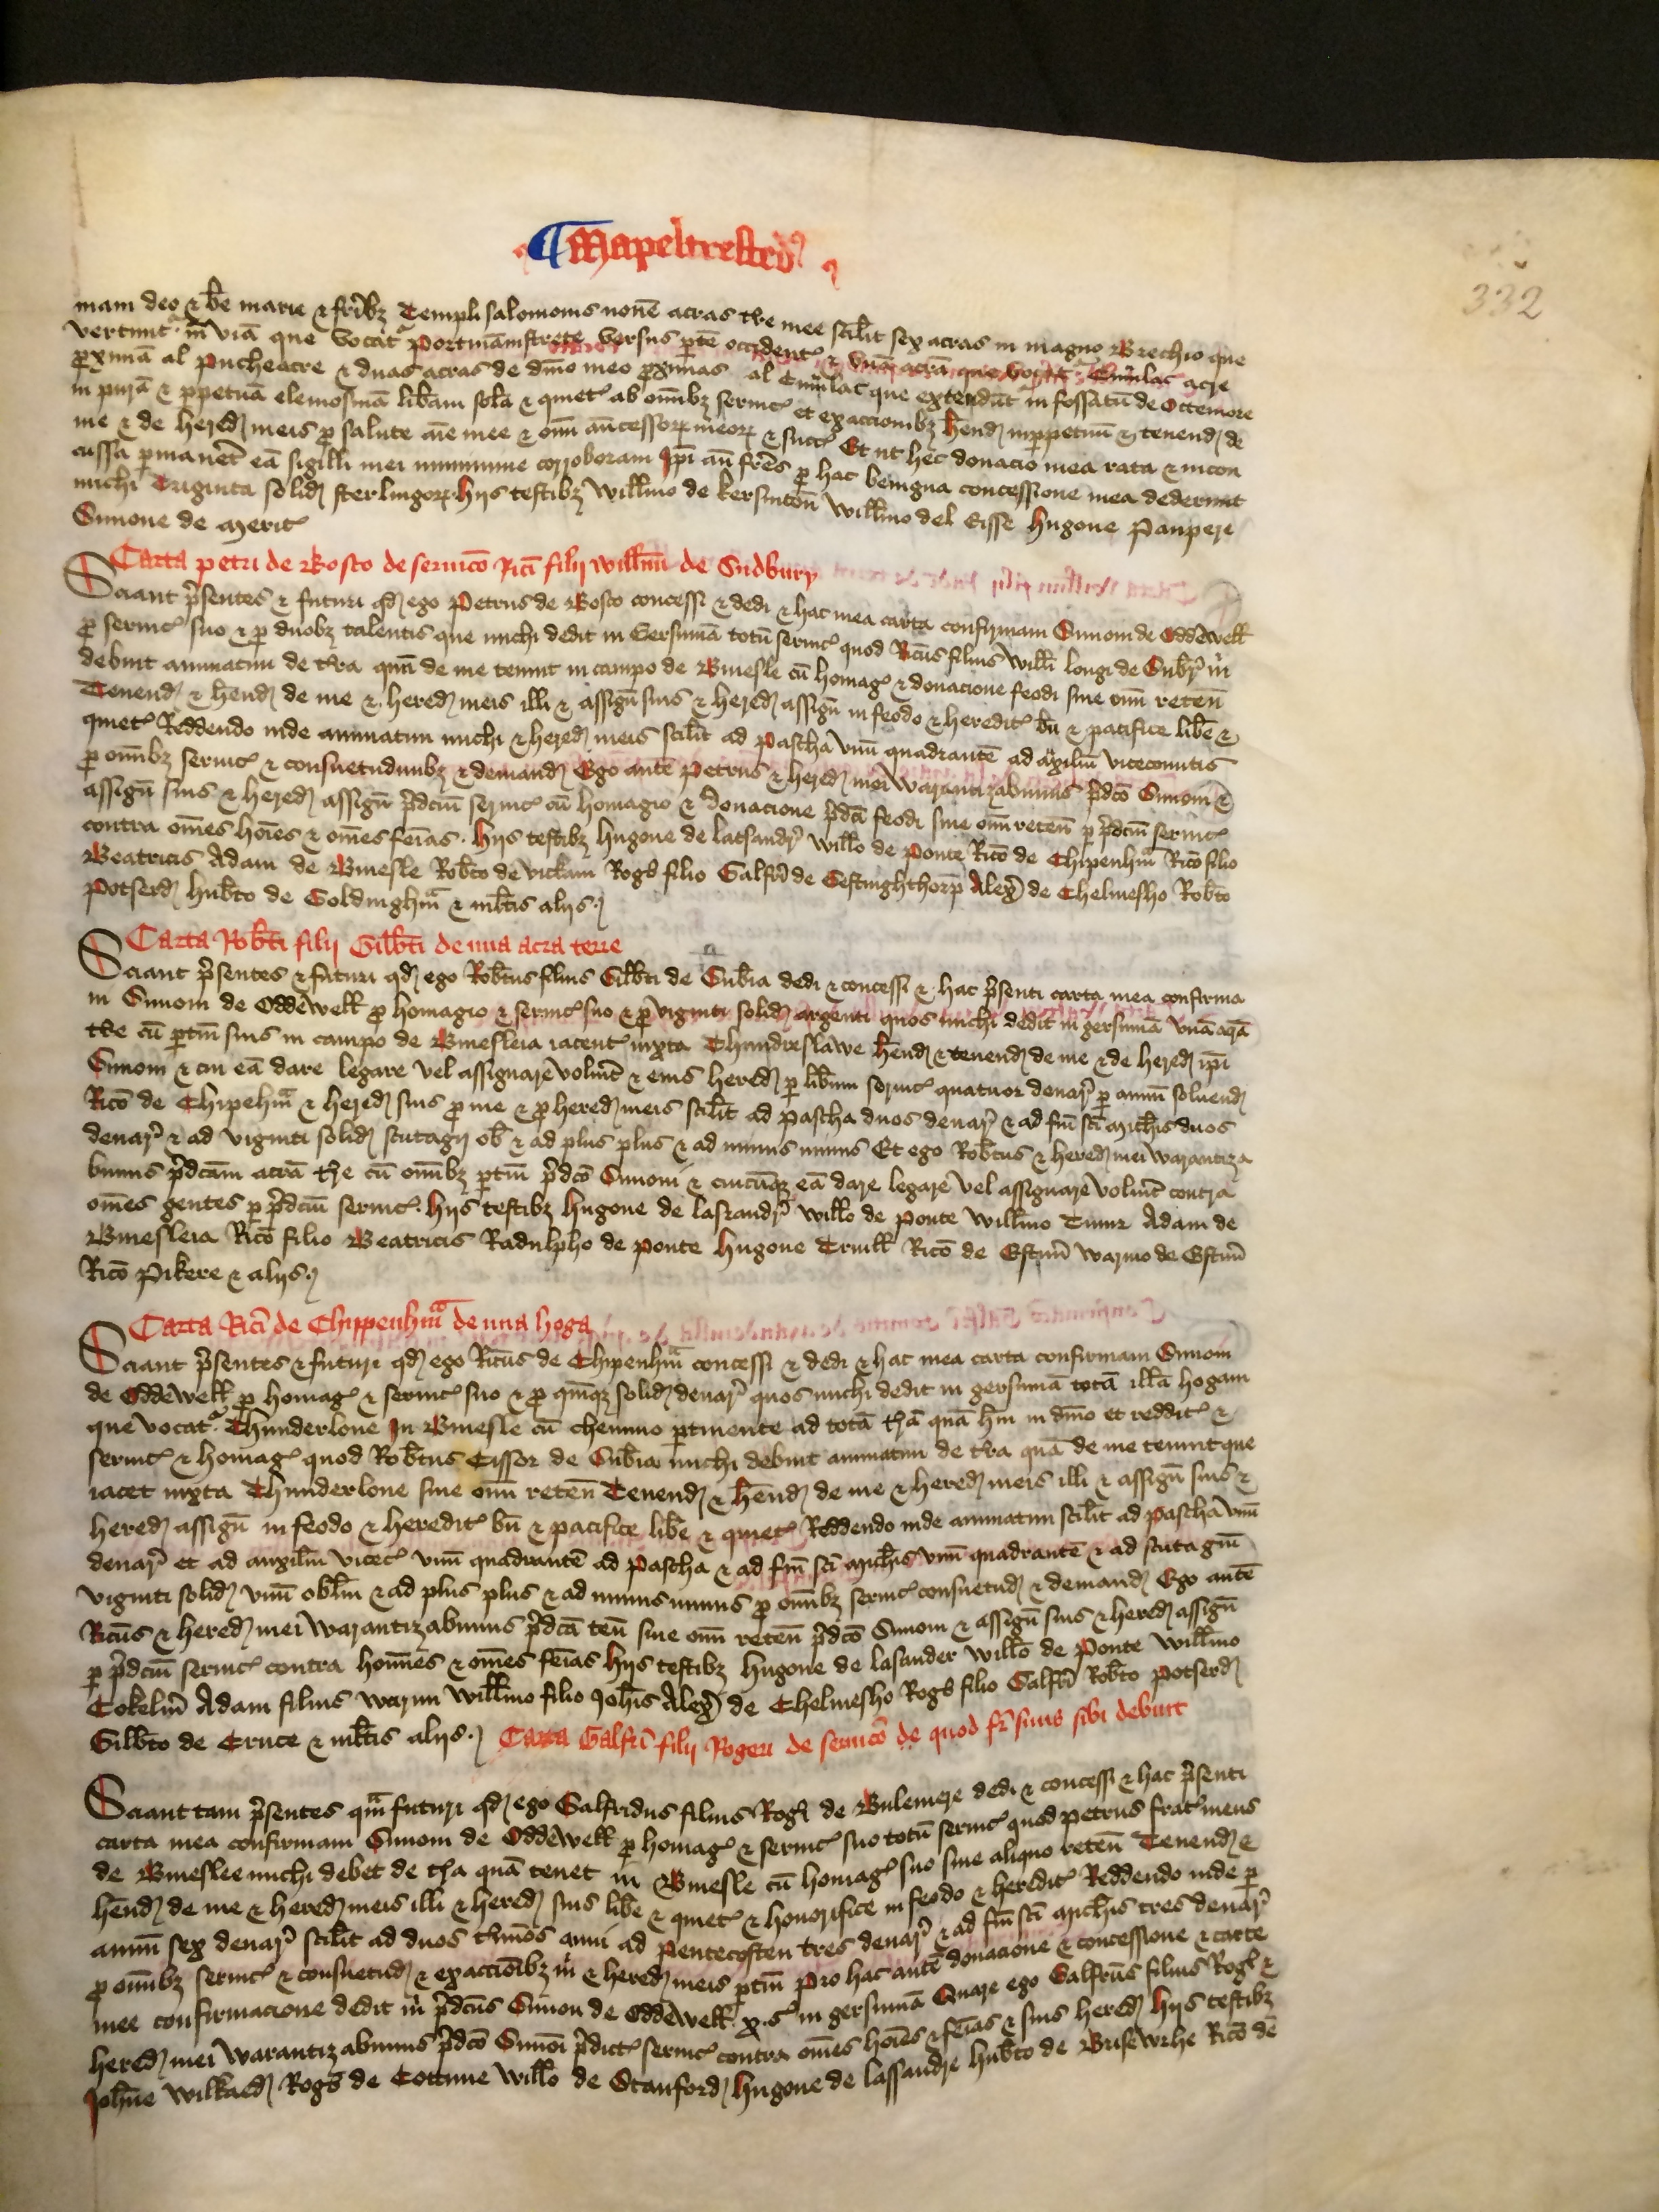 ¶ Mapeltrested
332
mam deo & be marie & frib3 Templi salomonis nouē acras tre mee scilt sex acras in magno Brechio que
vertunt in viā que vocat Portmāmstrete versus ptē occident & vnā acrā que vocat Emlac acre
pximā al Pucheacre & duas acras de dmo meo pximas al Emlac que extendūt in fossatū de Ottemore
in purā & ppetuā elemosinā libam solā & quiet ab omib3 seruic et exaccionib3 hend inppetuū & tenend de
me & de hered meis p salute aīe mee & omī ancessor meor & succ Et ut hec donacio mea rata & incon
cussa pmanet eā sigilli mei munimine corroboram Ipi aū fres p hac benigna concessione mea dederunt
michi Triginta solid sterlingor. hijs testib3 Willmo de kersintoū Willmo del Eisse hugone Paupere
Simone de Merit
Carta petri de Bosco de seruico Rici filij willmi de Sudbury
Sciant psentes & futuri qd ego Petrus de Bosco concessi & dedi & hac mea carta confirmam Simoni de Oddewell
p seruic suo & p duob3 talentis que michi dedit in Gersumā totū seruic quod Ricus filius willi longi de Subr m
debuit annuatim de tra quā de me tenuit in campo de Bmesle cū homag & donacione feodi sine omi reteñ
Tenend & hend de me & hered meis illi & assigñ suis & hered assigñ in feodo & heredit bñ & pacifice libe &
quiet Reddendo inde annuatim michi & hered meis scilt ad pascha vnū quadrantē ad axiliū vicecomitis
p omib3 seruic & consuetudinib3 & demand Ego autē Petrus & hered mei warantizabimus pdco Simoni &
assigñ suis & hered assigñ pdcm seruic cū homagio & donacione pdca feodi sine omi reteñ p pdcm seruic
contra omes hoies & omes feias. hijs testib3 hugone de lassandr willo de Ponte Rico de Chipenhm Rico filio
Beatricis Adam de Bmesle Robto de vickam Rogo filio Galfri de Gestinghthorp Alex de Chelmesho Robto
Potserd hubto de Goldinghm & mltis alijs.
Carta Robti filij Gilbti de una acra terre
Sciant psentes & futuri qd ego Robtus filius Gilbti de Subia dedi & concessi & hac psenti carta mea confirma
ui Simoni de Oddewell p homagio & seruic suo & p viginti solid argenti quos michi dedit in gersumā vnā acrā
tre cū ptiñ suis in campo de Bmesleia iacent iuxta Thundreslawe hend & tenend de me & de hered ipi
Simoni & cui eā dare legare vel assignare voluit & eius hered p libum seruic quatuor denar p annū soluend
Rico de Chipehm & hered suis p me & p hered meis scilt ad pascha duos denar & ad fm sci michis duos
denar & ad viginti solid scutagij ob & ad plus plus & ad minus minus Et ego Robtus & hered mei warantiza
bimus pdcam acrā tre cū omib3 ptiñ pdco Simoni & cuicūq3 eā dare legare vel assignare voluit contra
omes gentes p pdcm seruic. hijs testib3 hugone de lassandr willo de Ponte Willmo Tinur Adam de
Bmesleia Rico filio Beatricis Radulpho de Ponte hugone Truill Rico de Estun Warino de Estun
Rico Pikere & alijs.
Carta Rici de Chippenhm de una hoga
Sciant psentes & futuri qd ego Ricus de Chipenhm concessi & dedi & hac mea carta confirmam Simoni
de Oddewell p homag & seruic suo & p quinq3 solid denar quos michi dedit in gersumā totā illā hogam
que vocat Thunderlone In Bmesle cū chemino ptinente ad totā trā quā hm in dmo et reddit &
seruic & homag quod Robtus Cissor de Subia michi debuit annuatim de tra quā de me tenuit que
iacet iuxta Thunderlone sine omi reteñ Tenend & hend de me & hered meis illi & assigñ suis &
hered assigñ in feodo & heredit bñ & pacifice libe & quiet Reddendo inde annuatim scilt ad pascha vnū
denar et ad auxilm vicec vnū quadrantē ad Pascha & ad fm sci michis vnū quadrantē & ad scutagm
viginti solid vnū oblm & ad plus plus & ad minus minus p omib3 seruic consuetud & demand Ego autē
Ricus & hered mei warantizabimus pdcā teñ sine omi reteñ pdco Simoni & assigñ suis & hered assigñ
p pdcm seruic contra homines & omes feias hijs testib3 hugone de lasander willo de Ponte Willmo
Cokelm Adam filius warini Willmo filio Johis Alex de Chelmesho Rogo filio Galfri Robto potserd
Gilbto de Cruce & mltis alijs. Carta Galfri filij Rogeri de seruico de quod fr suus sibi debuit
Sciant tam psentes qm futuri qd ego Galfridus filius Rogi de Bulemere dedi & concessi & hac psenti
carta mea confirmam Simoni de Oddewell p homag & seruic suo totū seruic quod petrus frat meus
de Bmeslee michi debet de tra quā tenet in Bmesle cū homag suo sine aliquo reteñ Tenend &
hend de me & hered meis illi & hered suis libe & quiet & honorifice in feodo & heredit Reddendo inde p
annū sex denar scilt ad duos tminos anni ad Pentecosten tres denar & ad fm sci michis tres denar
p omib3 seruic & consuetud & exaccionib3 m & hered meis ptiñ Pro hac autē donacione & concessione & carte
mee confirmacione dedit m pdcus Simon de Oddewell x. s in gersumā Quare ego Galfrus filius Rogi &
hered mei warantizabimus pdco Simoi pdict seruic contra omes hoies & feias & suis hered hijs testib3
Johne Wilkaed Rogo de Cottune Willo de Stanford hugone de lassandre hubto de Brisewrhe Rico de